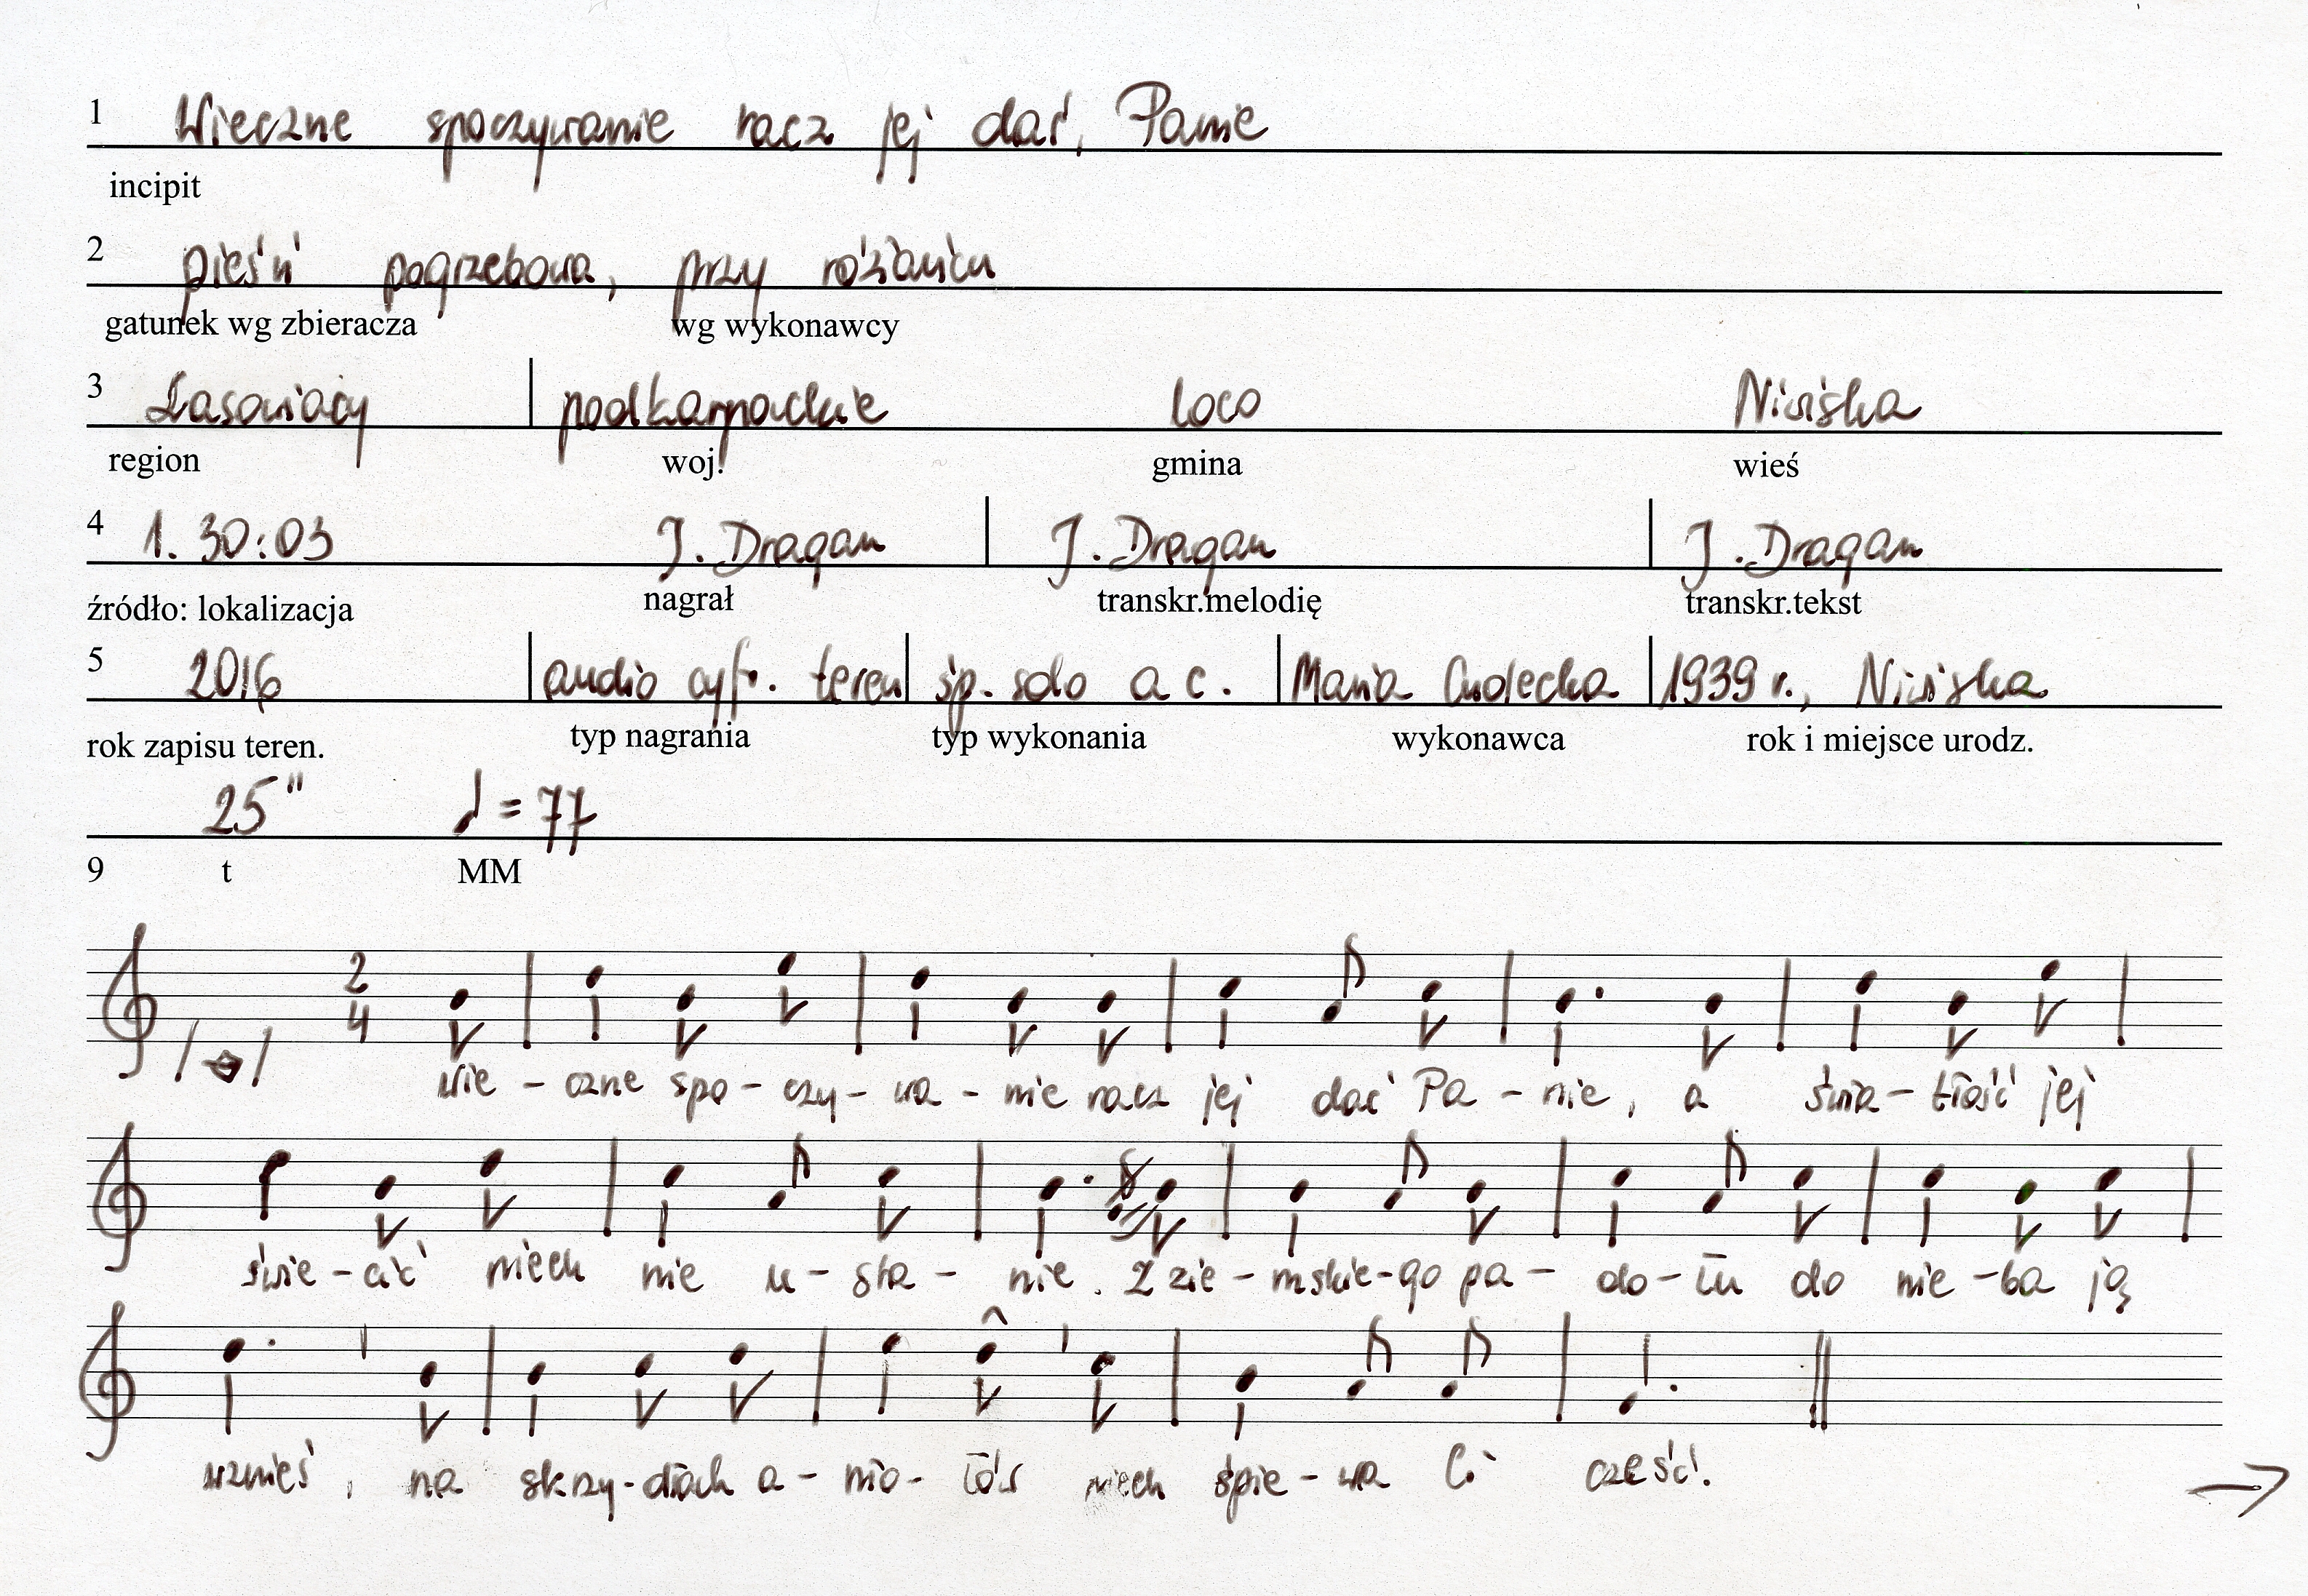 1 Wieczne spoczywanie racz jej dać, Panie
incipit
2 pieśń pogrzebowa, przy różańcu
gatunek wg zbieracza wg wykonawcy
3 Lasowiacy podkarpackie loco Niwiska
region woj. gmina wieś
4 1. 30:03 J. Dragan J. Dragan J. Dragan
źródło: lokalizacja nagrał transkr.melodię transkr.tekst
5 2016 audio cyfr. teren śp. solo a c. Maria 1939 r., Niwiska
rok zapisu teren. typ nagrania typ wykonania wykonawca rok i miejsce urodz.
25" ♩ = 77
9 t MM
2
4
Wie - czne spo - czy - wa - nie racz jej dać Pa - nie, a świa - tłość jej
świe - cić niech nie u - sta - nie. Z zie - mskie - go pa - do - łu do nie - ba ją
wznieś, na skrzy - dłach a - nio - łów niech śpie - wa Ci cześć.